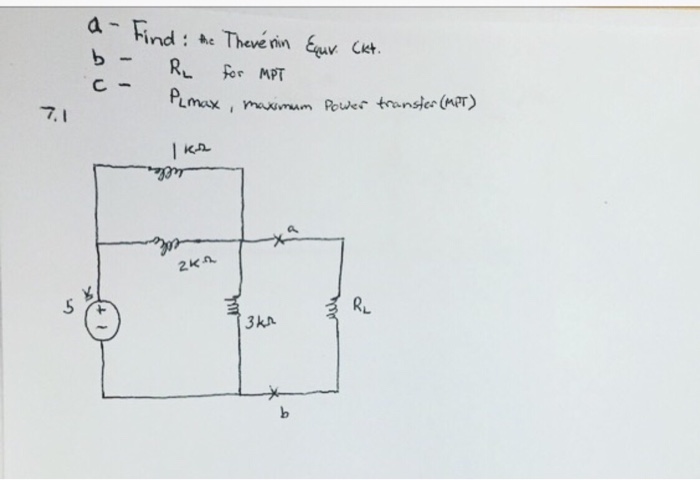 a - Find : the Thevénin Equv. Ckt.
b - RL for MPT
c - PLmax, maximum Power transfer (MPT)
7.1
1 KΩ
a
2KΩ
5 v
+
-
3kΩ
RL
b